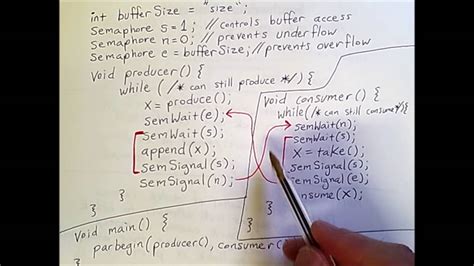 int bufferSize = "size";
Semaphore s=1; // controls buffer access
Semaphore n=0; // prevents underflow
Semaphore e=bufferSize; // prevents overflow
void producer() {
while ( /* can still produce */) {
X = produce();
semWait(e);
semWait(s);
append(X);
semSignal(s);
semSignal(n);
}
}
void consumer() {
while(/* can still consume */){
semWait(n);
semWait(s);
X = take();
semSignal(s);
semSignal(e);
consume(X);
}
}
void main() {
parbegin(producer(), consumer
}